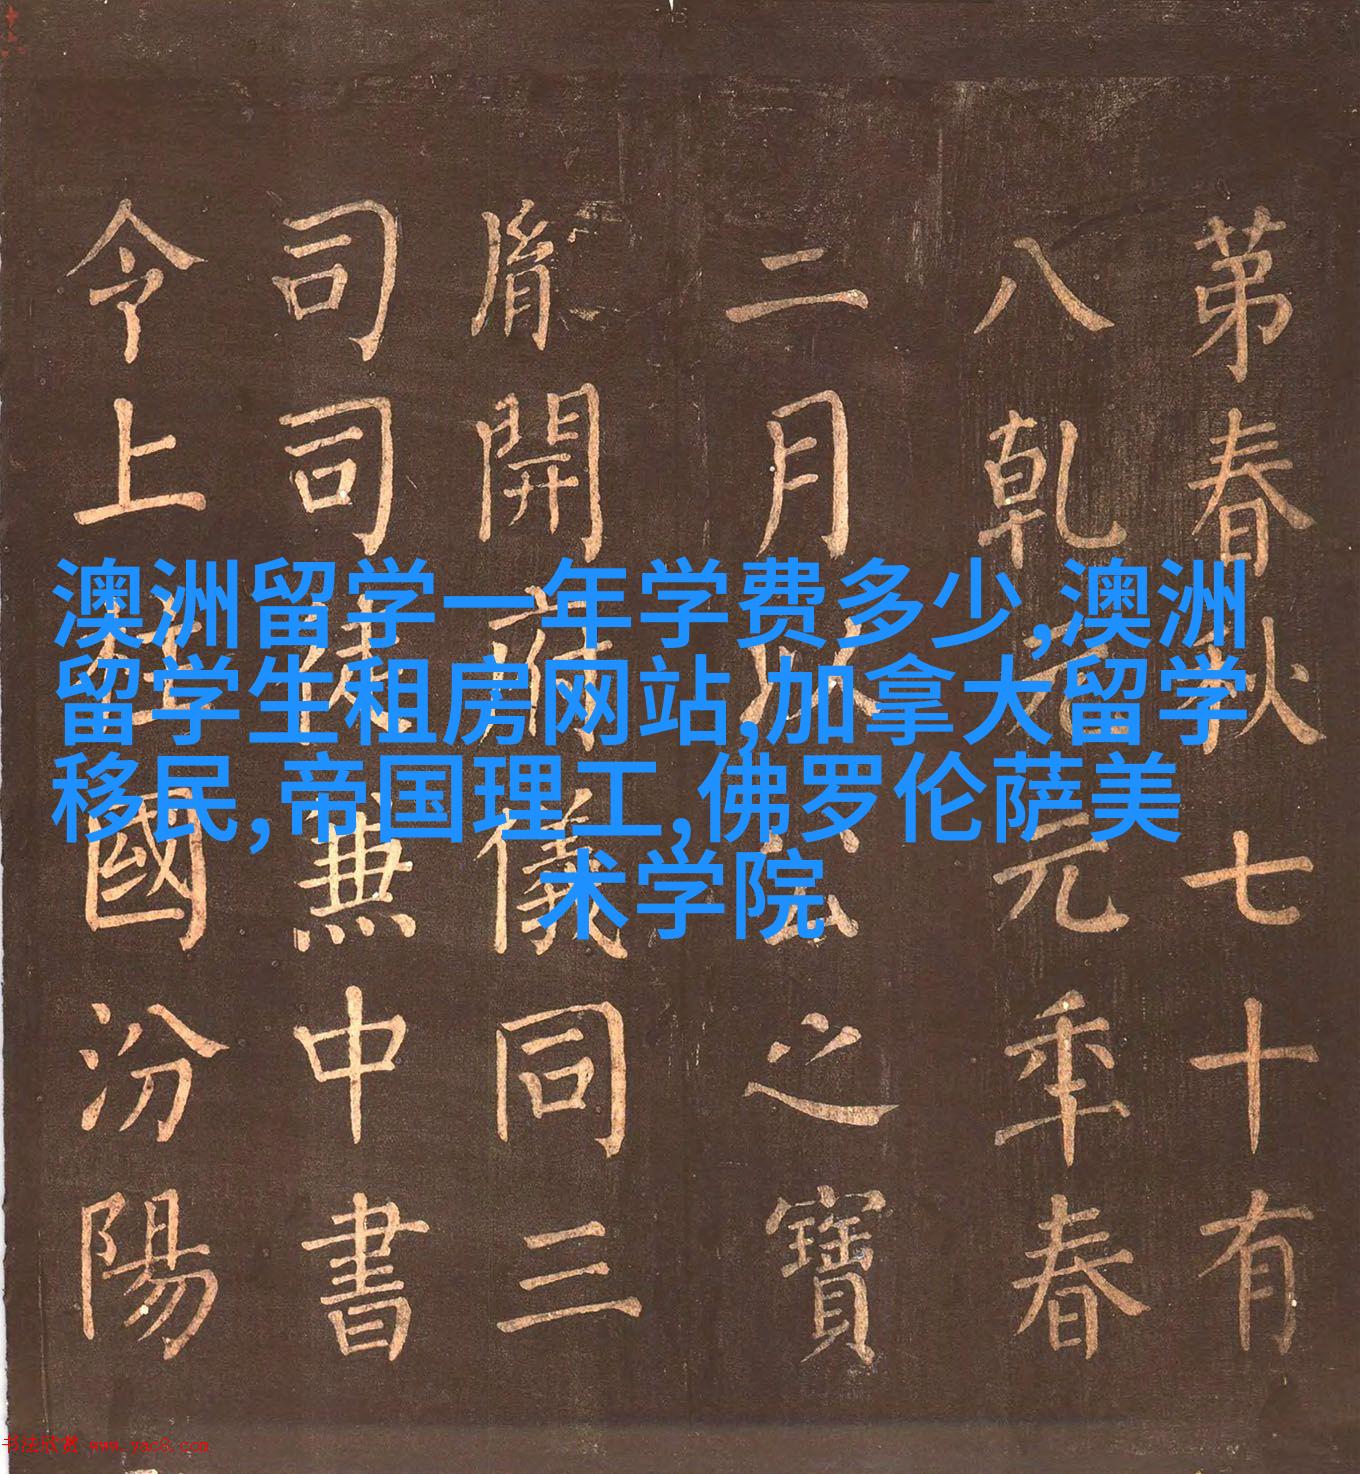 澳洲留学一年学费多少,澳洲
留学生租房网站,加拿大留学
移民,帝国理工,佛罗伦萨美
术学院
苐春秋七十有
八乾元年春
二月以公之寶
胤開府儀同三
司司徒兼中書
令上柱國汾陽
书法欣赏 www.yac8.com